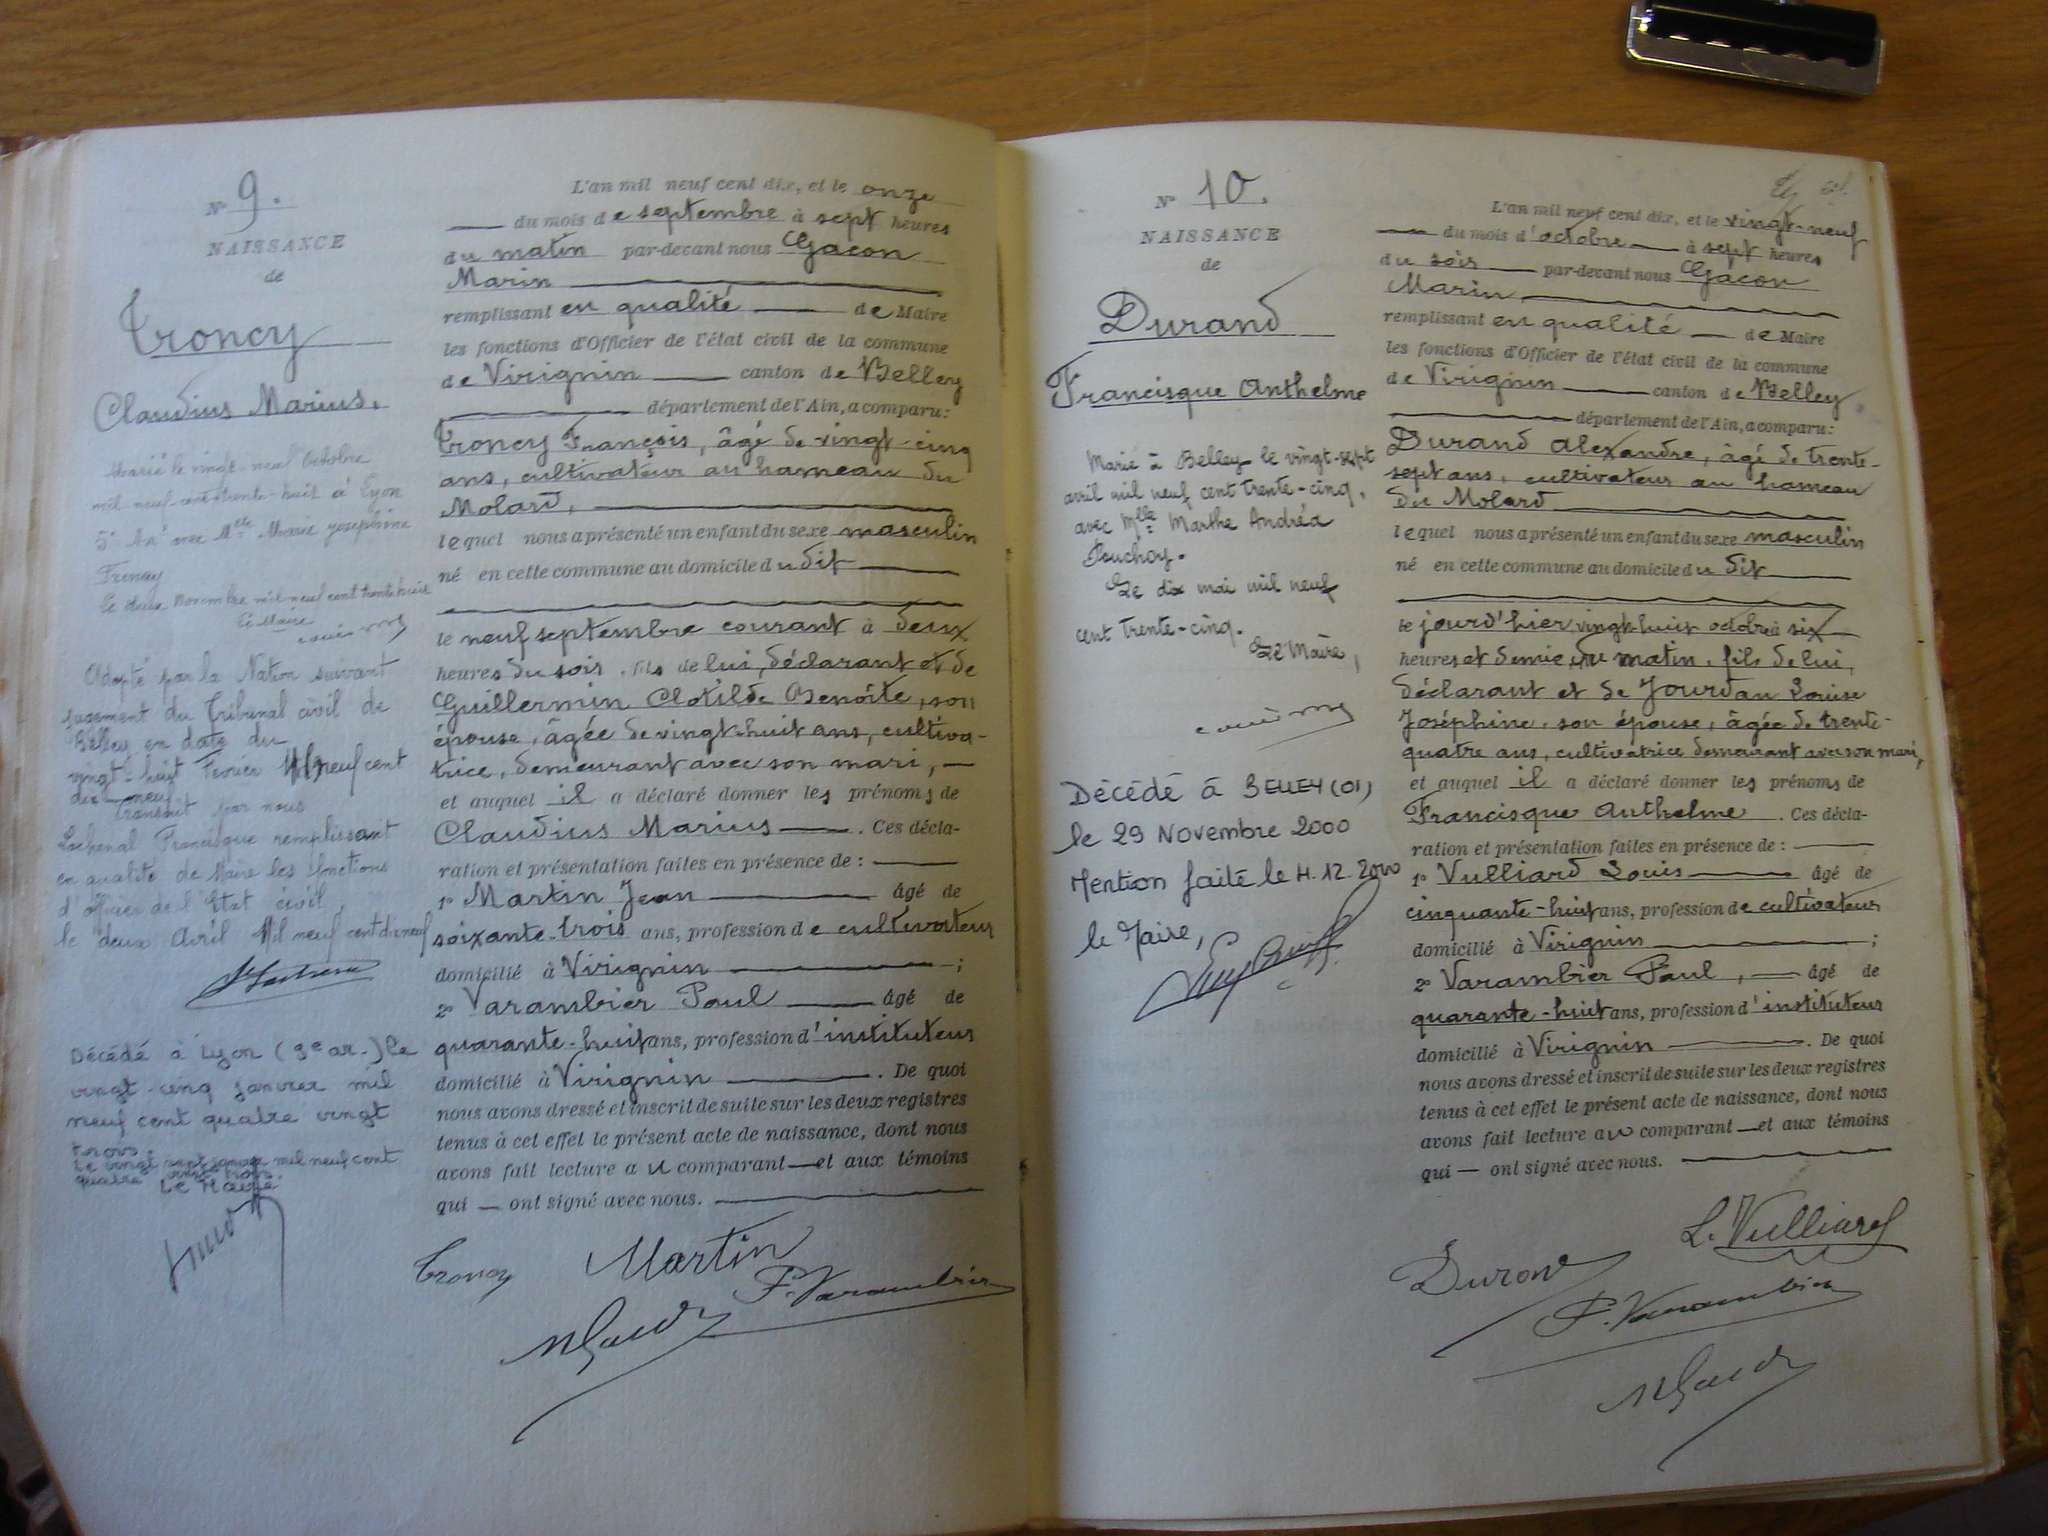 N° 9.
NAISSANCE
de
Troncy
Claudius Marius.
Marié le vingt-neuf Octobre
mil neuf cent trente-huit à Lyon
5e Arrt avec Mlle Marie Josephine
Frenay
Le deux Novembre mil neuf cent trente huit
Le Maire
Adopté par la Nation suivant
jugement du Tribunal civil de
Belley en date du
vingt-huit Fevrier Mil neuf cent
dix neuf
Transcrit par nous
Lochenal Francisque remplissant
en qualité de Maire les fonctions
d'officier de l'Etat civil,
le deux Avril Mil neuf cent dixneuf
Décédé à Lyon (9e ar.) le
vingt-cinq janvier mil
neuf cent quatre vingt
trois.
Le vingt sept janvier mil neuf cent
quatre vingt trois.
Le Maire
L'an mil neuf cent dix, et le onze
du mois de septembre à sept heures
du matin par-devant nous Gacon
Marin
remplissant en qualité de Maire
les fonctions d'Officier de l'état civil de la commune
de Virignin canton de Belley
département de l'Ain, a comparu:
Troncy François, âgé de vingt-cinq
ans, cultivateur au hameau du
Molard,
lequel nous a présenté un enfant du sexe masculin
né en cette commune au domicile du dit
le neuf septembre courant à deux
heures du soir, fils de lui, déclarant et de
Guillermin Clotilde Benoîte, son
épouse, âgée de vingt-huit ans, cultiva-
trice, demeurant avec son mari,
et auquel il a déclaré donner les prénoms de
Claudius Marius. Ces décla-
ration et présentation faites en présence de:
1° Martin Jean âgé de
soixante-trois ans, profession de cultivateur
domicilié à Virignin;
2° Varambier Paul âgé de
quarante-huit ans, profession d'instituteur
domicilié à Virignin. De quoi
nous avons dressé et inscrit de suite sur les deux registres
tenus à cet effet le présent acte de naissance, dont nous
avons fait lecture au comparant et aux témoins
qui ont signé avec nous.
Troncy Martin
P. Varambier
M Gacon
N° 10.
NAISSANCE
de
Durand
Francisque Anthelme
Marié à Belley le vingt-sept
avril mil neuf cent trente-cinq,
avec Mlle Marthe Andréa
Pouchoy.
Le dix mai mil neuf
cent trente-cinq.
Le Maire,
Décédé à BELLEY (01)
le 29 Novembre 2000
Mention faite le 4.12.2000
le Maire,
L'an mil neuf cent dix, et le vingt-neuf
du mois d'octobre à sept heures
du soir par-devant nous Gacon
Marin
remplissant en qualité de Maire
les fonctions d'Officier de l'état civil de la commune
de Virignin canton de Belley
département de l'Ain, a comparu:
Durand Alexandre, âgé de trente-
sept ans, cultivateur au hameau
du Molard
lequel nous a présenté un enfant du sexe masculin
né en cette commune au domicile du dit
le jourd'hier vingt-huit octobre à six
heures et demie du matin, fils de lui,
déclarant et de Jourdan Louise
Joséphine, son épouse, âgée de trente-
quatre ans, cultivatrice demeurant avec son mari,
et auquel il a déclaré donner les prénoms de
Francisque Anthelme. Ces décla-
ration et présentation faites en présence de:
1° Vulliard Louis âgé de
cinquante-huit ans, profession de cultivateur
domicilié à Virignin;
2° Varambier Paul, âgé de
quarante-huit ans, profession d'instituteur
domicilié à Virignin. De quoi
nous avons dressé et inscrit de suite sur les deux registres
tenus à cet effet le présent acte de naissance, dont nous
avons fait lecture au comparant et aux témoins
qui ont signé avec nous.
L. Vulliard
Durand
P. Varambier
M Gacon